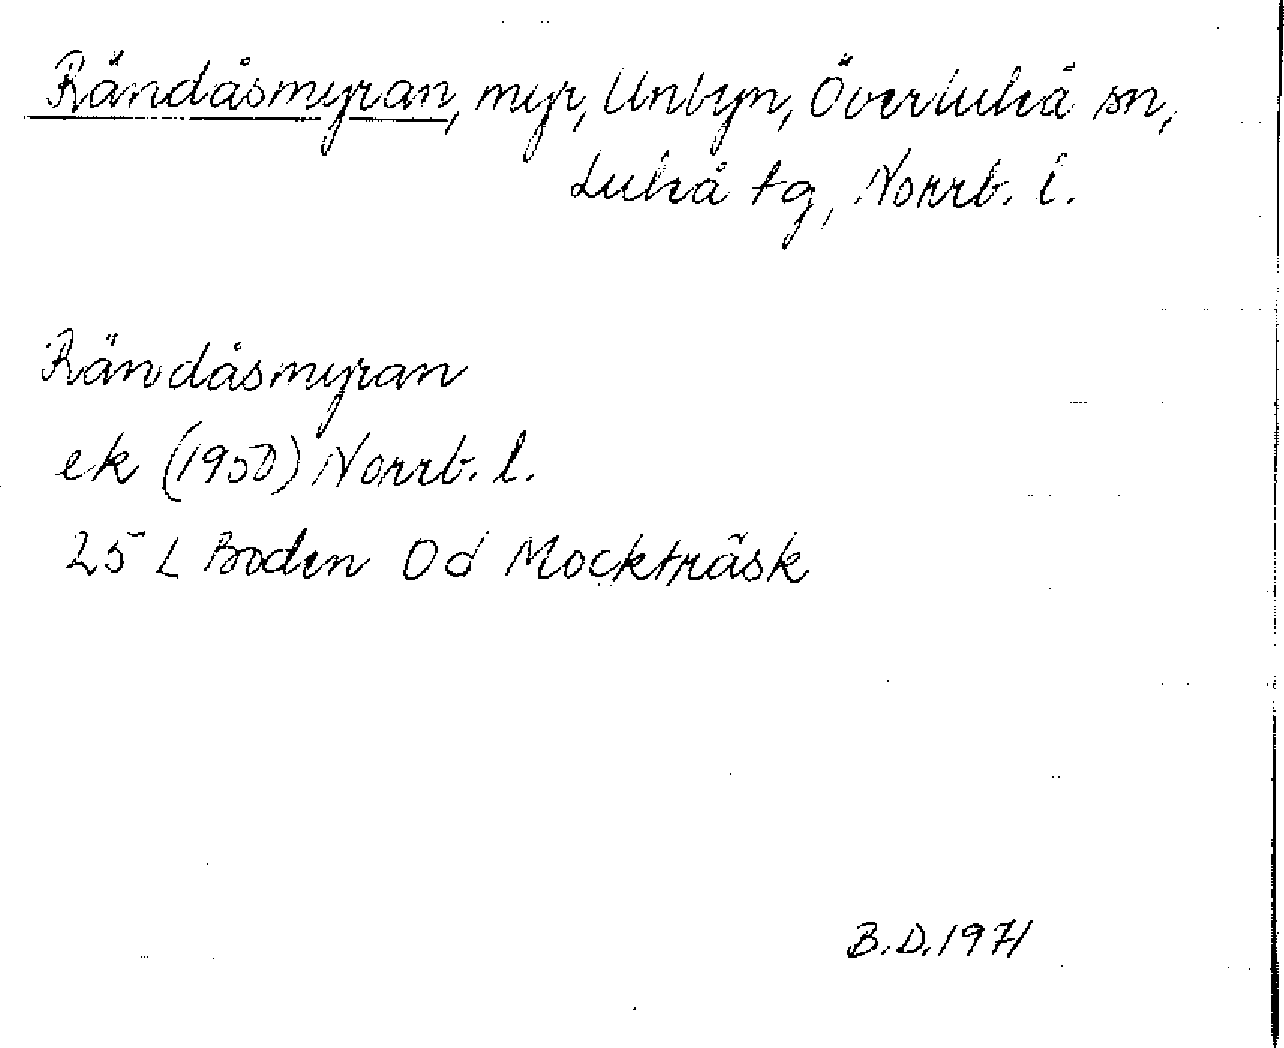 Rändåsmyran, myr, Unbyn, Överluleå sn,
Luleå tg, Norrb. l.
Rändåsmyran
ek (1950) Norrb. l.
25 L Boden 0d Mockträsk
B.D. 1971